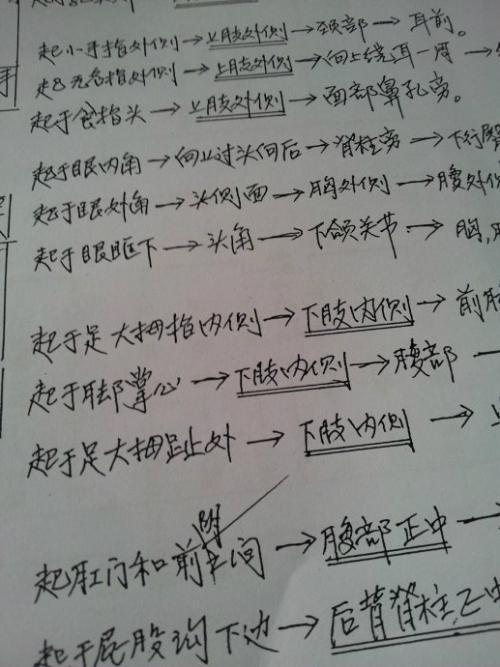 手
起小手指外侧→上肢外侧→颈部→耳前。
起无名指外侧→上肢外侧→向上绕耳一周→
起于食指头→上肢外侧→面部鼻孔旁。
起于眼内角→向上过头向后→脊柱旁→下行臀
起于眼外角→头侧面→胸外侧→腹外侧
起于眼眶下→头角→下颌关节→胸,
起于足大拇指内侧→下肢内侧→前胸
起于脚掌心→下肢内侧→腹部→
起于足大拇趾外→下肢内侧→
起肛门和前阴中间→腹部正中→
起于屁股沟下边→后背脊柱正中